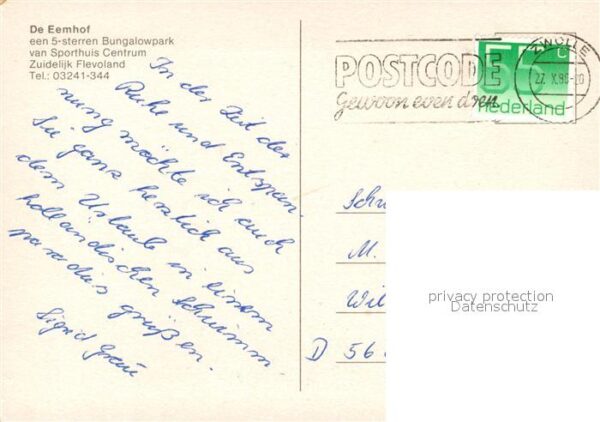 De Eemhof
een 5-sterren Bungalowpark
van Sporthuis Centrum
Zuidelijk Flevoland
Tel.: 03241-344
In der Zeit der
Ruhe und Entspan-
nung möchte ich auch
Sie ganz herzlich aus
dem Urlaub in einem
holländischen Schwimm
paradies grüßen.
Sigrid
POSTCODE
Gewoon even doen
ZWOLLE
27. X.
55 c
nederland
Sch
M.
Wil
D 56
privacy protection
Datenschutz